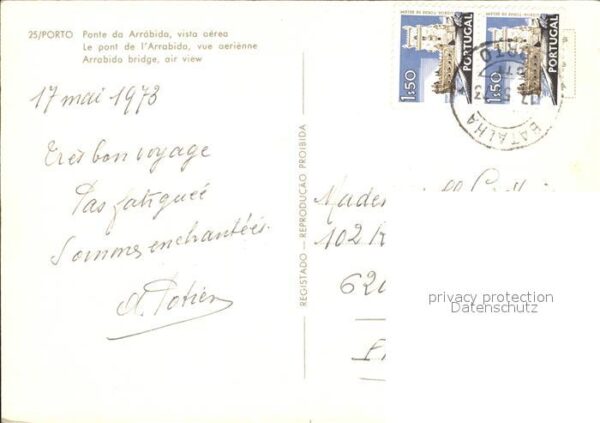 25/PORTO Ponte da Arrábida, vista aérea
Le pont de l'Arrabida, vue aerienne
Arrabida bridge, air view
17 mai 1973
Très bon voyage
Pas fatiguée
Sommes enchantées.
REGISTADO — REPRODUÇÃO PROIBIDA
1$50
PORTUGAL
1$50
PORTUGAL
BATALHA
PORTO
102
62
privacy protection
Datenschutz